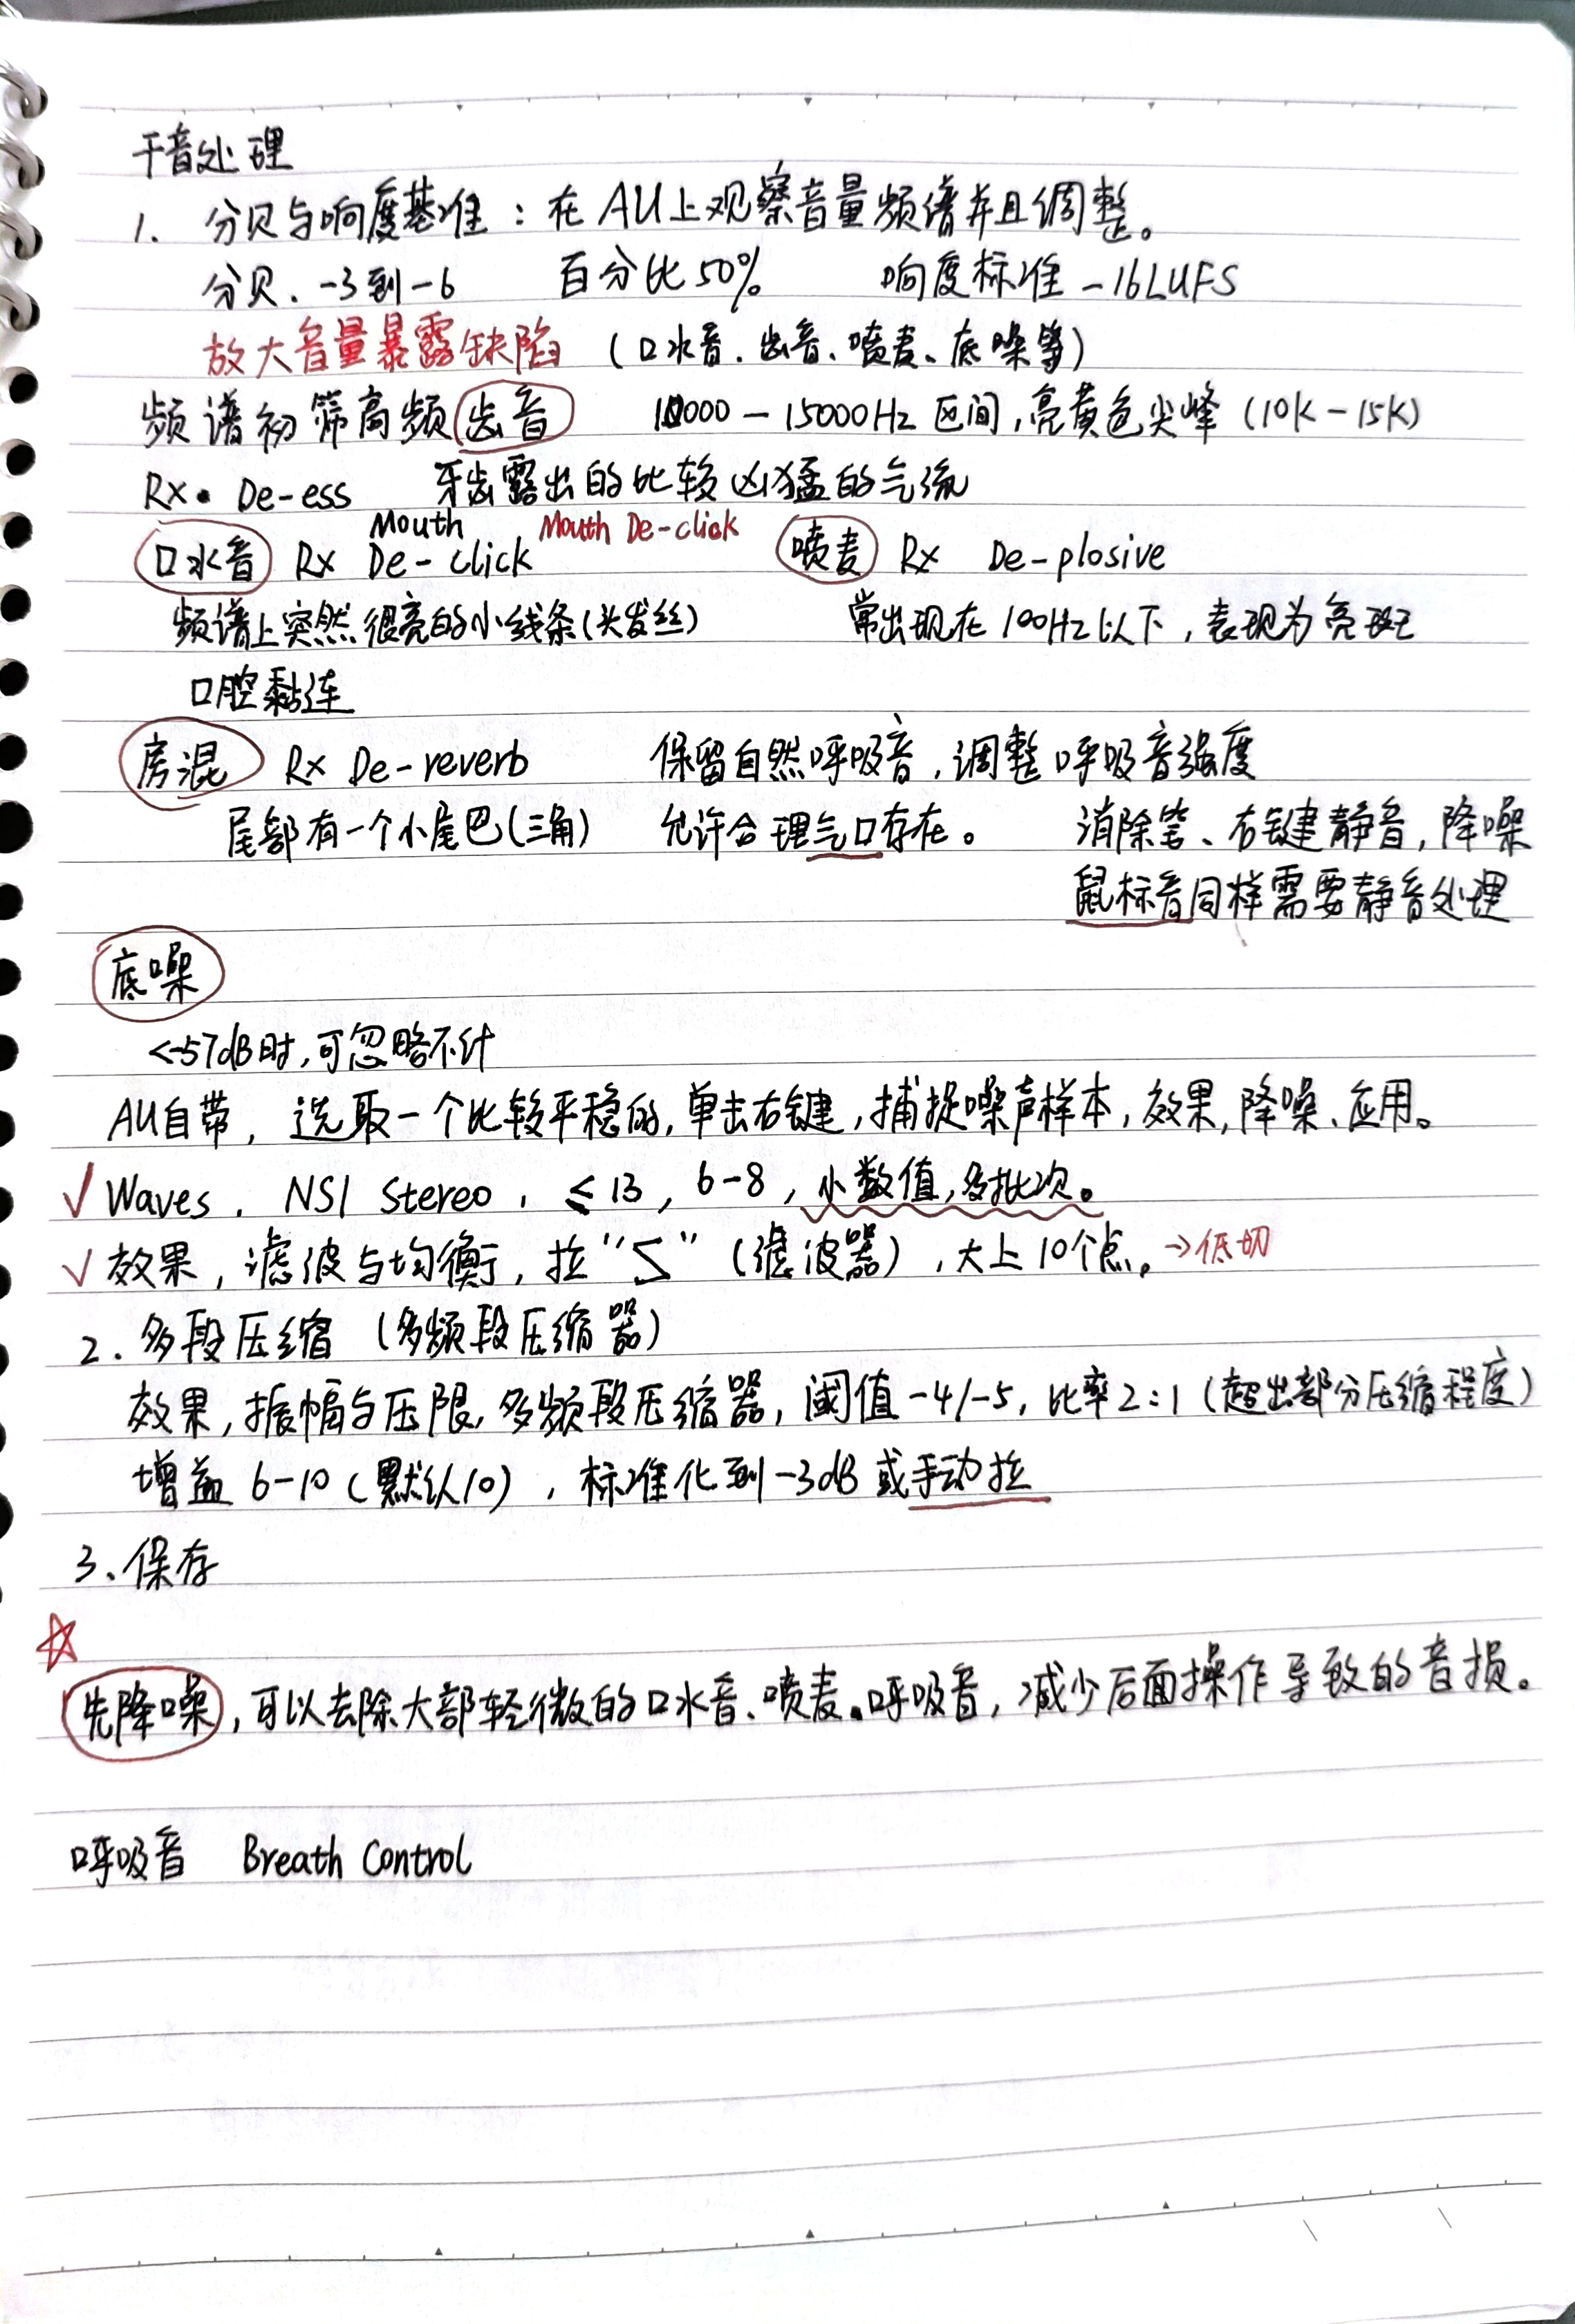 干音处理
1. 分贝与响度基准：在AU上观察音量频谱并且调整。
分贝.-3到-6 百分比50% 响度标准-16LUFS
放大音量暴露缺陷（口水音.齿音、喷麦、底噪等）
频谱初筛高频齿音 10000-15000Hz区间,亮黄色尖峰(10K-15K)
Rx. De-ess 牙齿露出的比较凶猛的气流
Mouth Mouth De-click
口水音 Rx De-click 喷麦 Rx De-plosive
频谱上突然很亮的小线条(头发丝) 常出现在100Hz以下,表现为亮斑
口腔黏连
房混 Rx De-reverb 保留自然呼吸音,调整呼吸音强度
尾部有一个小尾巴(三角) 允许合理气口存在。 消除笔、右键静音,降噪
鼠标音同样需要静音处理
底噪
<-57dB时,可忽略不计
AU自带, 选取一个比较平稳的,单击右键,捕捉噪声样本,效果,降噪、应用。
√Waves. NS1 Stereo, ≤13, 6-8, 小数值,多批次。
√效果, 滤波与均衡, 拉“S”(滤波器), 大上10个点。→低切
2. 多段压缩 (多频段压缩器)
效果,振幅与压限,多频段压缩器,阈值-4/-5,比率2:1(超出部分压缩程度)
增益6-10(默认10), 标准化到-3dB或手动拉
3、保存
☆
先降噪,可以去除大部轻微的口水音、喷麦.呼吸音,减少后面操作导致的音损。
呼吸音 Breath Control